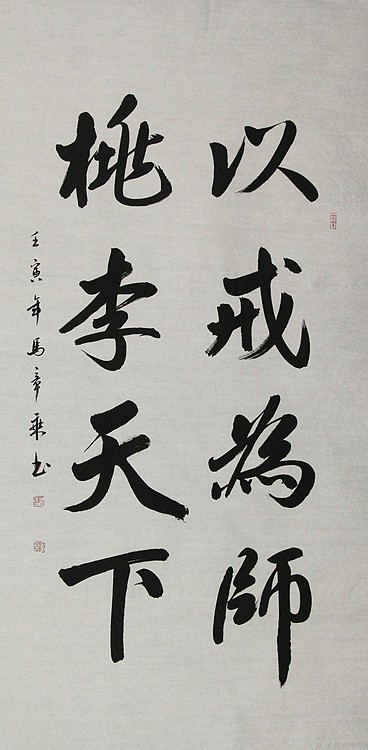 以戒為師
桃李天下
壬寅年馬章乘书